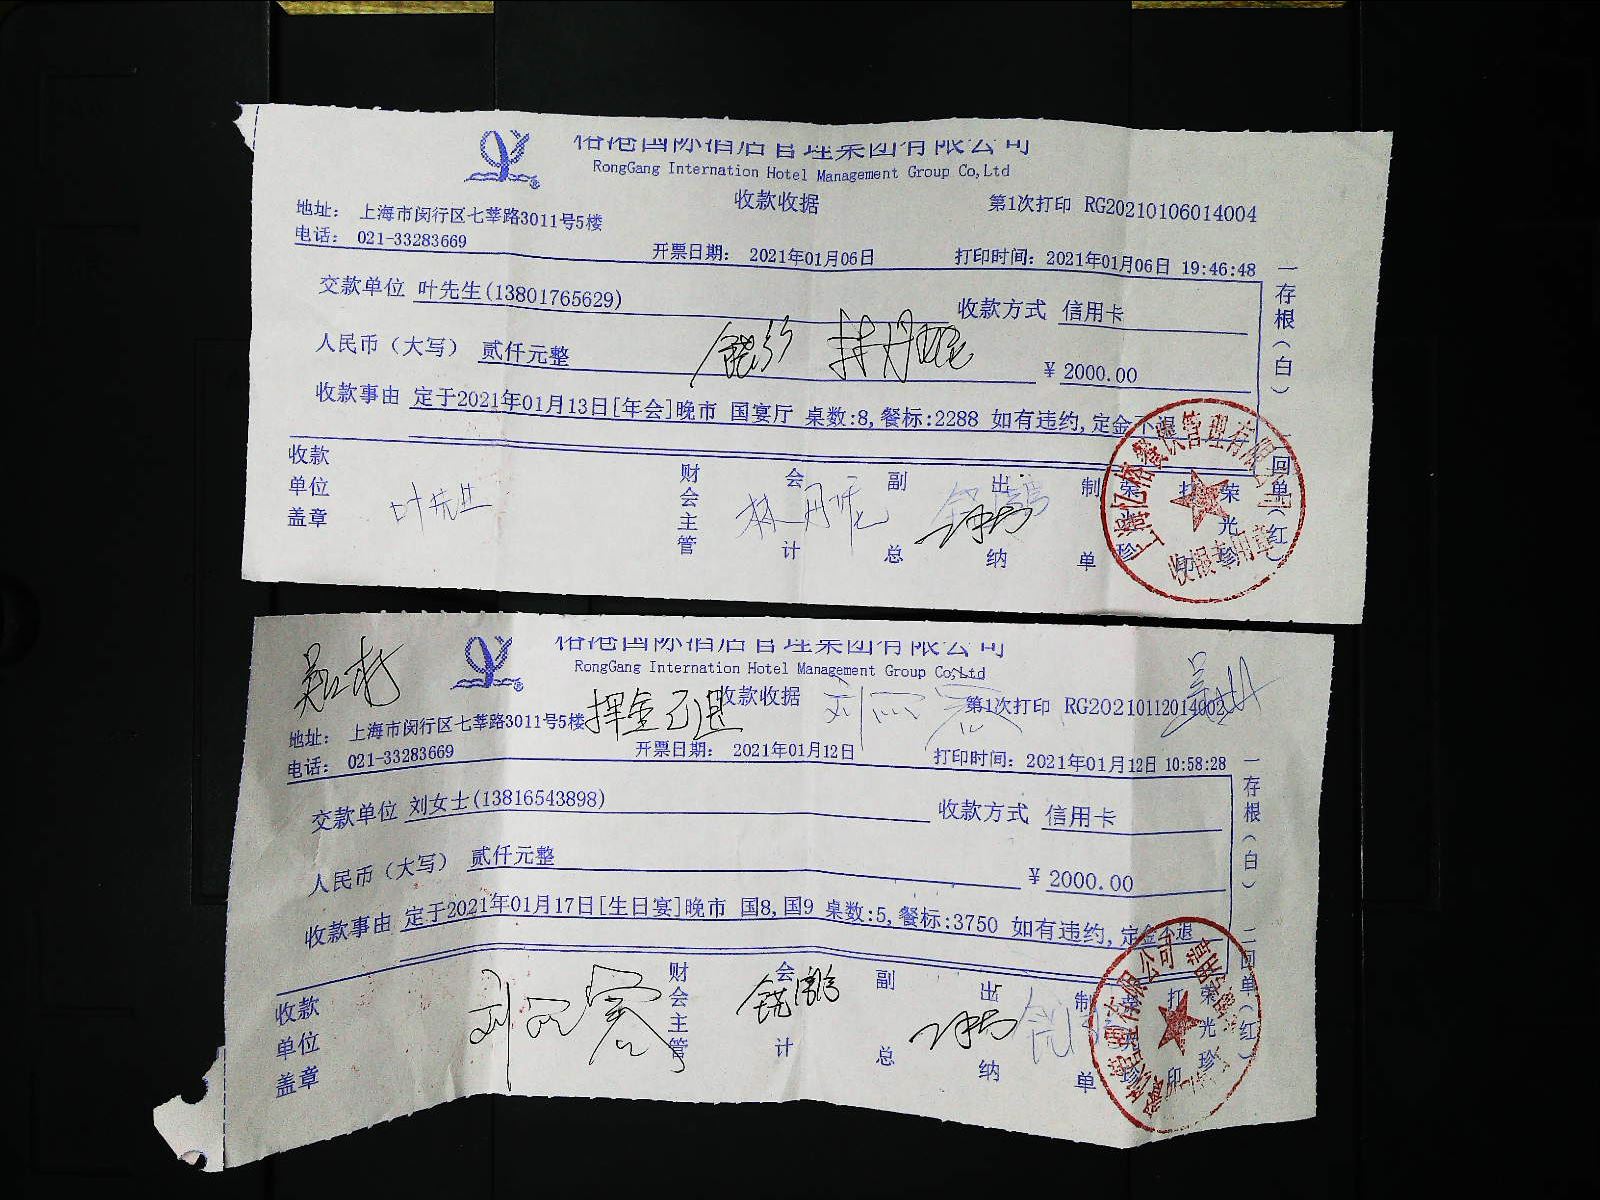 榕港国际酒店管理集团有限公司
RongGang Internation Hotel Management Group Co,Ltd
收款收据
第1次打印 RG20210106014004
地址: 上海市闵行区七莘路3011号5楼
电话: 021-33283669
开票日期: 2021年01月06日
打印时间: 2021年01月06日 19:46:48
交款单位 叶先生(13801765629)
收款方式 信用卡
人民币(大写) 贰仟元整
¥ 2000.00
收款事由 定于2021年01月13日[年会]晚市 国宴厅 桌数:8,餐标:2288 如有违约,定金不退
一存根(白)
二回单(红)
收款单位盖章
叶先生
财会主管
会计
副总
出纳
制单
荣光珍
打印
荣光珍
收据专用章
榕港国际酒店管理集团有限公司
RongGang Internation Hotel Management Group Co,Ltd
收款收据
第1次打印 RG20210112014002
地址: 上海市闵行区七莘路3011号5楼
电话: 021-33283669
押金已退
开票日期: 2021年01月12日
打印时间: 2021年01月12日 10:58:28
交款单位 刘女士(13816543898)
收款方式 信用卡
人民币(大写) 贰仟元整
¥ 2000.00
收款事由 定于2021年01月17日[生日宴]晚市 国8,国9 桌数:5,餐标:3750 如有违约,定金不退
一存根(白)
二回单(红)
收款单位盖章
财会主管
会计
副总
出纳
制单
荣光珍
打印
荣光珍